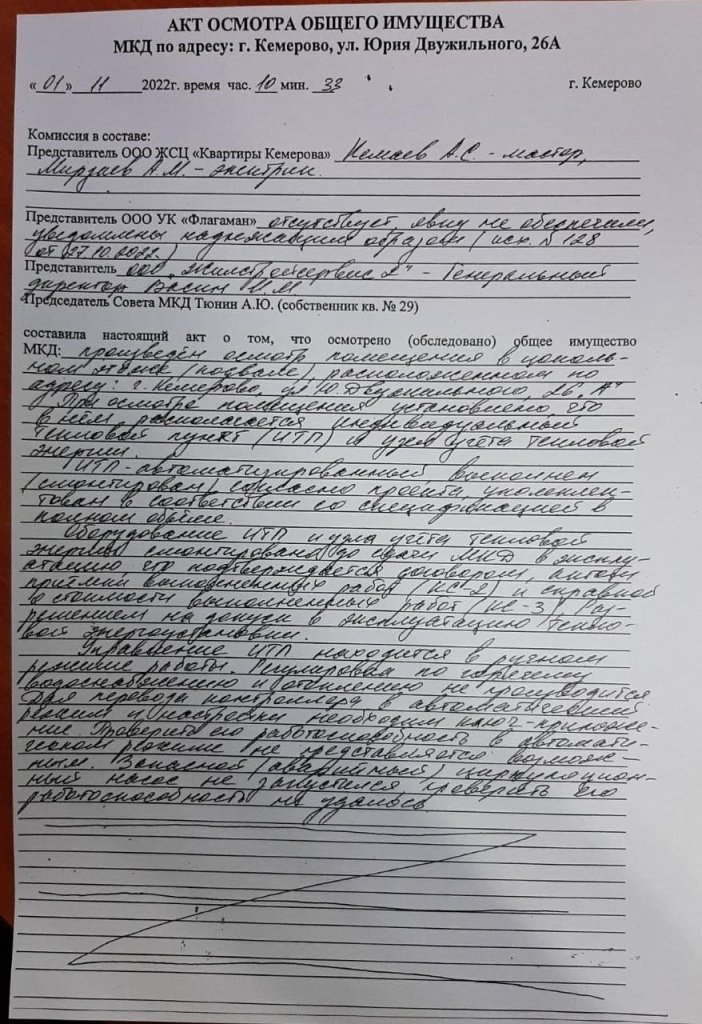 АКТ ОСМОТРА ОБЩЕГО ИМУЩЕСТВА
МКД по адресу: г. Кемерово, ул. Юрия Двужильного, 26А
«01» 11 2022г. время час. 10 мин. 33 г. Кемерово
Комиссия в составе:
Представитель ООО ЖСЦ «Квартиры Кемерова» А.С. - мастер,
А.М. -
Представитель ООО УК «Флагаман» отсутствует, явку не обеспечили,
уведомлены надлежащим образом (исх. №128
от 27.10.2022)
Представитель ООО "Жилстройсервис 2" - Генеральный
директор Васин М.М.
Председатель Совета МКД Тюнин А.Ю. (собственник кв. № 29)
составила настоящий акт о том, что осмотрено (обследовано) общее имущество
МКД: произведён осмотр помещения в цоколь-
ном этаже (подвале), расположенном по
адресу: г. Кемерово, ул. Ю. Двужильного, 26 "А"
При осмотре помещения установлено, что
в нём располагается индивидуальный
тепловой пункт (ИТП) и узел учета тепловой
энергии.
ИТП - автоматизированный, выполнен
(смонтирован) согласно проекта, укомплек-
тован в соответствии со спецификацией в
полном объёме.
Оборудование ИТП и узла учёта тепловой
энергии смонтированы до сдачи МКД в эксплу-
атацию, что подтверждается договором, актами
приёмки выполненных работ (КС-2) и справкой
о стоимости выполненных работ (КС-3), Раз-
решением на допуск в эксплуатацию тепло-
вой энергоустановки.
Управление ИТП находится в ручном
режиме работы. Регулировка по горячему
водоснабжению и отоплению не производится
Для перевода контроллера в автоматический
режим и настройки необходим ключ-приложе-
ние. Проверить его работоспособность в автомати-
ческом режиме не представляется возмож-
ным. Запасной (аварийный) циркуляцион-
ный насос не запустился, проверить его
работоспособность не удалось.